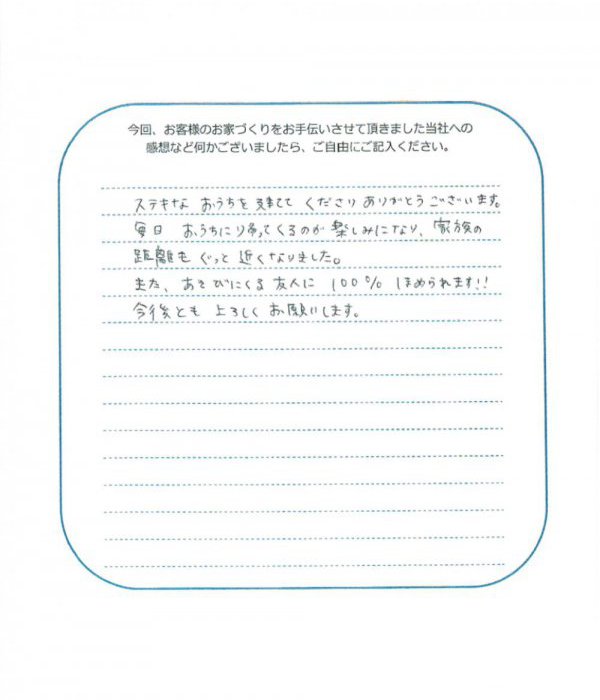 今回、お客様のお家づくりをお手伝いさせて頂きました当社への
感想など何かございましたら、ご自由にご記入ください。
ステキな おうちを 建てて くださり ありがとうございます。
毎日 おうちに帰ってくるのが 楽しみになり、家族の
距離も ぐっと 近くなりました。
また、あそびにくる 友人に 100% ほめられます!!
今後とも よろしく お願いします。